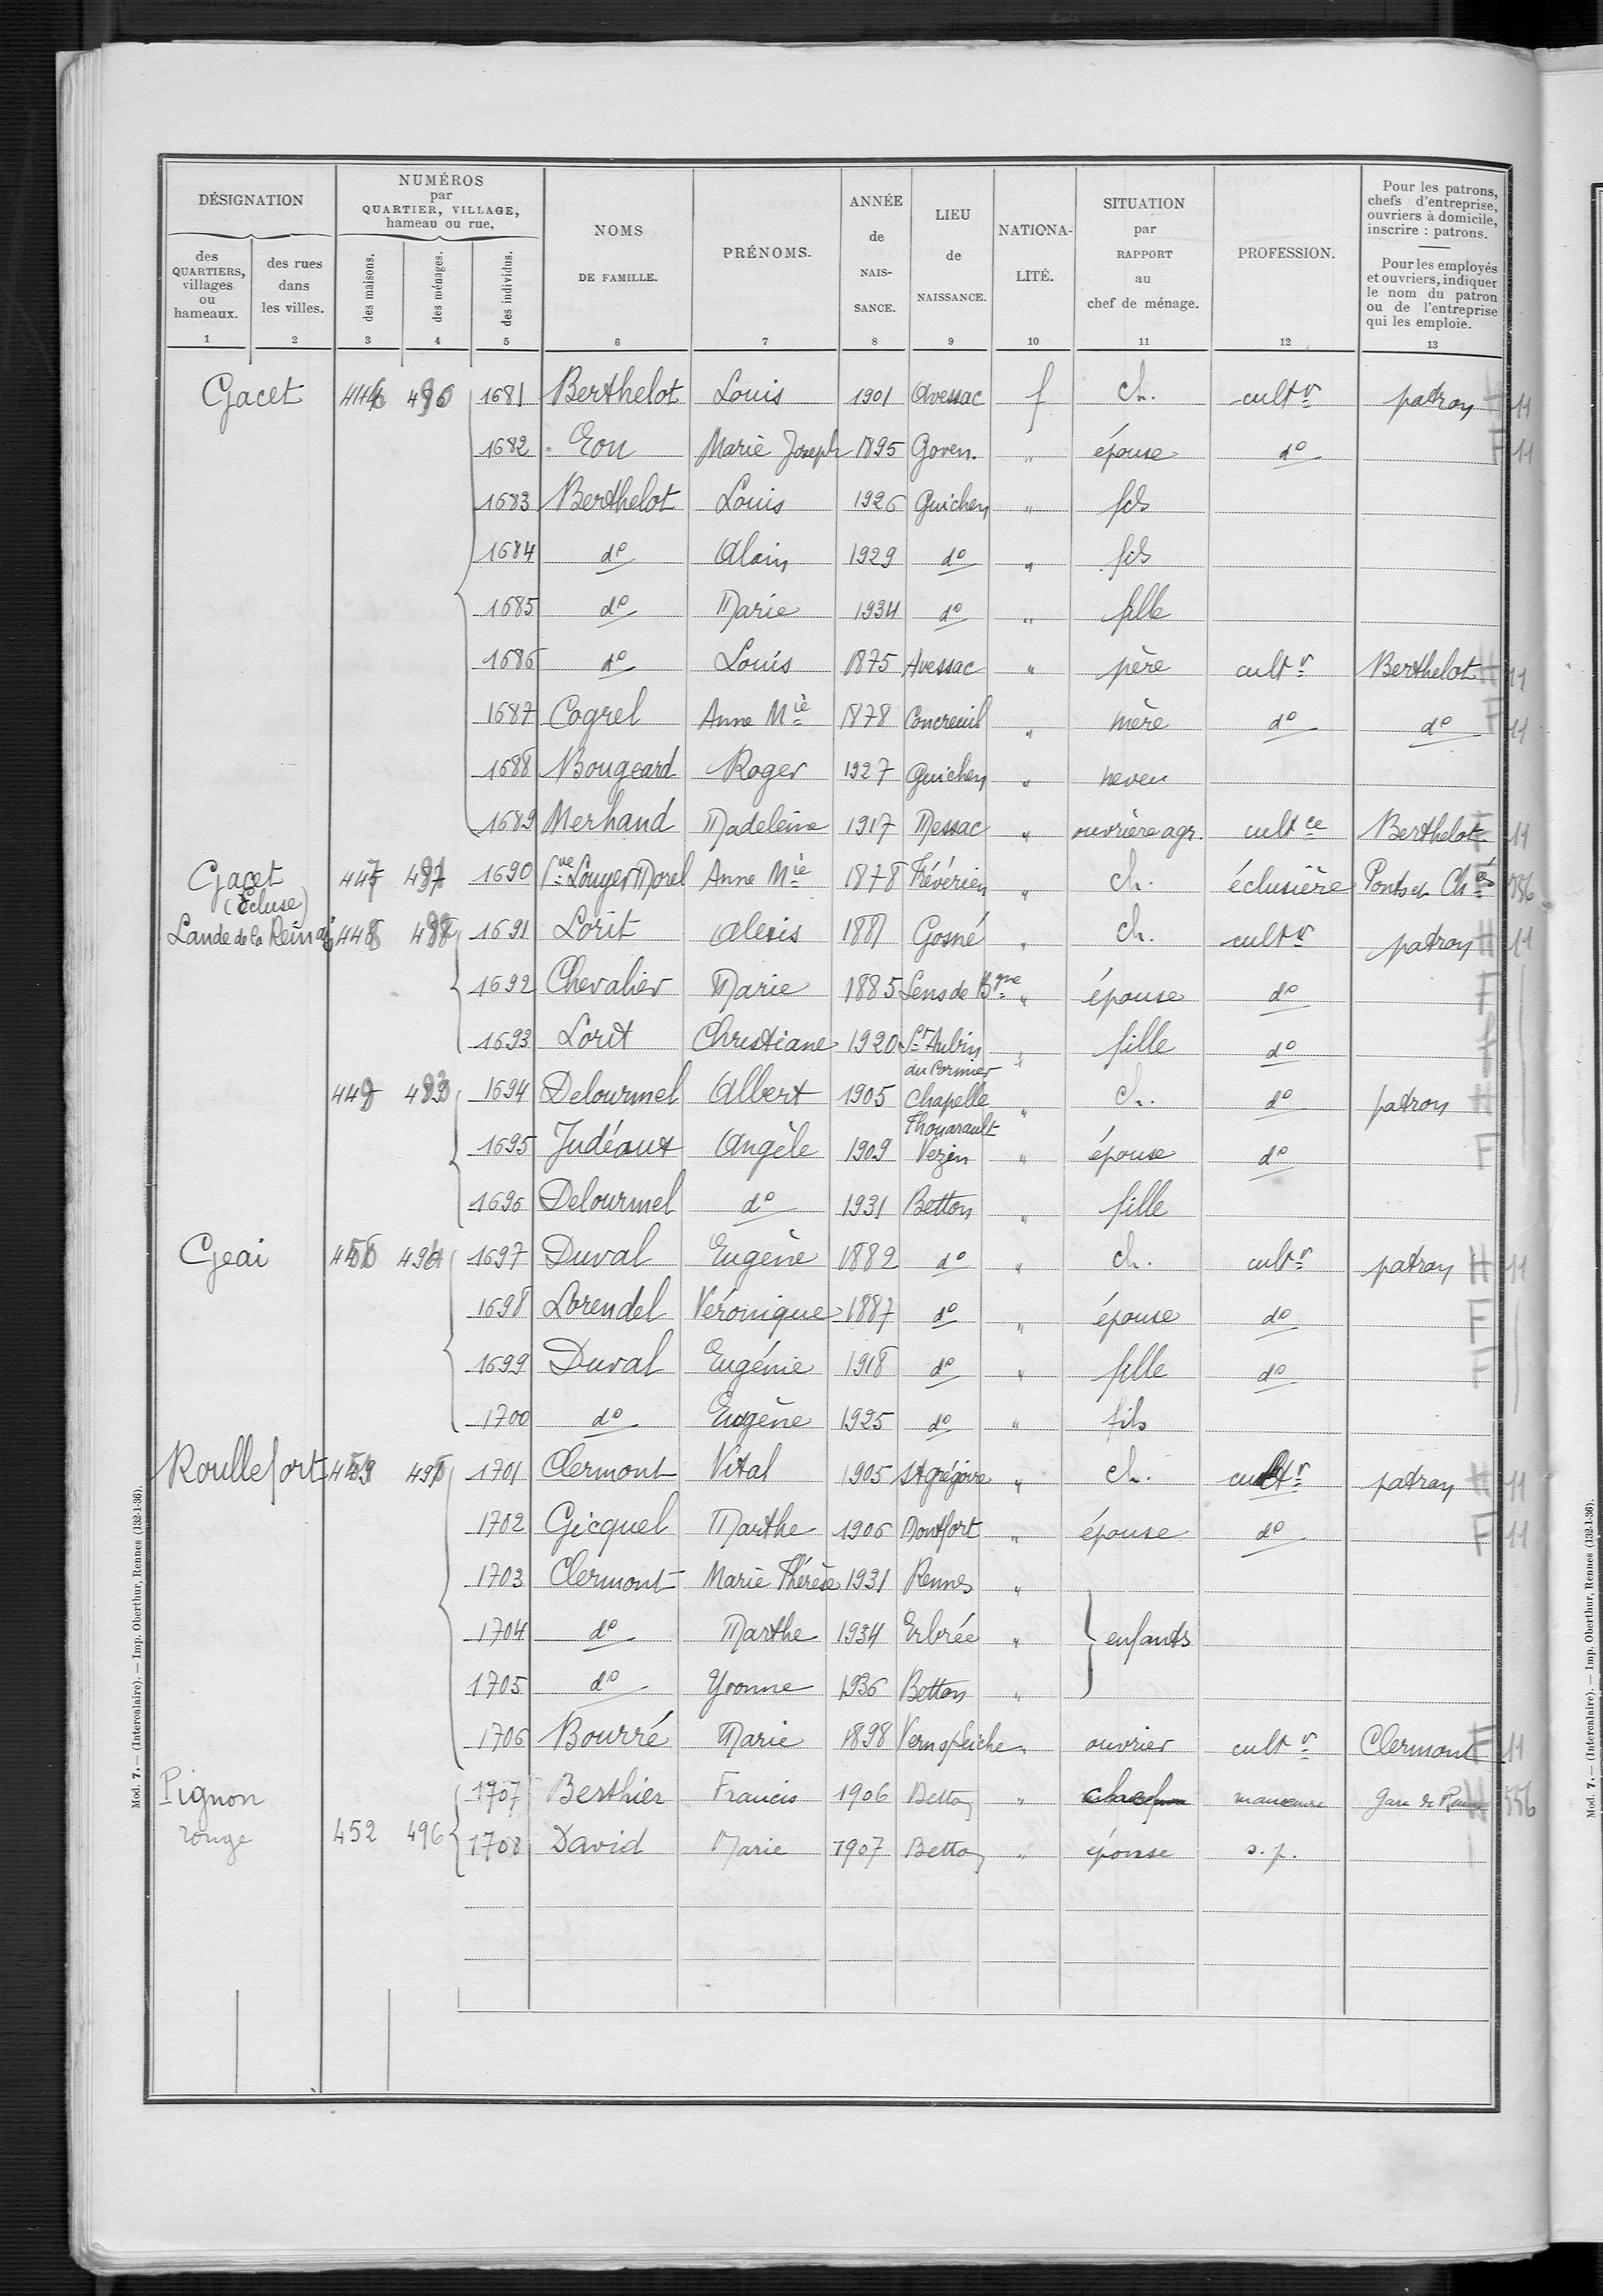 DÉSIGNATION
des QUARTIERS, villages ou hameaux.
1
des rues dans les villes.
2
NUMÉROS par QUARTIER, VILLAGE, hameau ou rue.
des maisons.
3
des ménages.
4
des individus.
5
NOMS DE FAMILLE.
6
PRÉNOMS.
7
ANNÉE de NAIS- SANCE.
8
LIEU de NAISSANCE.
9
NATIONA- LITÉ.
10
SITUATION par RAPPORT au chef de ménage.
11
PROFESSION.
12
Pour les patrons, chefs d'entreprise, ouvriers à domicile, inscrire : patrons.
Pour les employés et ouvriers, indiquer le nom du patron ou de l'entreprise qui les emploie.
13
Gacet 1681 Berthelot Louis 1901 Avessac f ch. cultr patron 11
1682 Eon Marie Joseph 1895 Goven. " épouse do F 11
1683 Berthelot Louis 1926 Guichen " fils
1684 do Alain 1929 do " fils
1685 do Marie 1934 do " fille
1686 do Louis 1875 Avessac " père cultr Berthelot H 11
1687 Cogrel Anne Mie 1878 " mère do do F 11
1688 Bougeard Roger 1927 Guichen " neveu
1689 Merhand Madeleine 1917 Messac " ouvrière agr. cultce Berthelot F 11
Gacet (Écluse) 447 487 1690 Vve Louyer Morel Anne Mie 1878 Trévérien " ch. éclusière Ponts et Chés 556
Lande de la 448 1691 Lorit Alexis 1881 Gosné " ch. cultr patron H 11
1692 Chevalier Marie 1885 Sens de Bgne " épouse do F
1693 Lorit Christiane 1920 St Aubin du Cormier " fille do
449 1694 Delourmel Albert 1905 Chapelle Thouarault " ch. do patron H
1695 Judéaux Angèle 1909 Vezin " épouse do F
1696 Delourmel do 1931 Betton " fille
Geai 494 1697 Duval Eugène 1882 do " ch. cultr patron H 11
1698 Lorendel Véronique 1887 do " épouse do F
1699 Duval Eugénie 1918 do " fille do F
1700 do Eugène 1925 do " fils
Roullefort 495 1701 Clermont Vital 1905 St Grégoire " ch. cultr patron H 11
1702 Gicquel Marthe 1906 Montfort " épouse do F 11
1703 Clermont Marie Thérèse 1931 Rennes "
1704 do Marthe 1934 Erbrée " enfants
1705 do Yvonne 1936 Betton "
1706 Bourré Marie 1898 Vern s/ Seiche " ouvrier cultr Clermont F 11
Pignon rouge 452 496 1707 Berthier Francis 1906 Betton " manœuvre Gare de Rennes H 556
1708 David Marie 1907 Betton " épouse s.p.
Mod. 7. — (Intercalaire). — Imp. Oberthur, Rennes (132-1-36).
Mod. 7. — (Intercalaire). — Imp. Oberthur, Rennes (132-1-36).